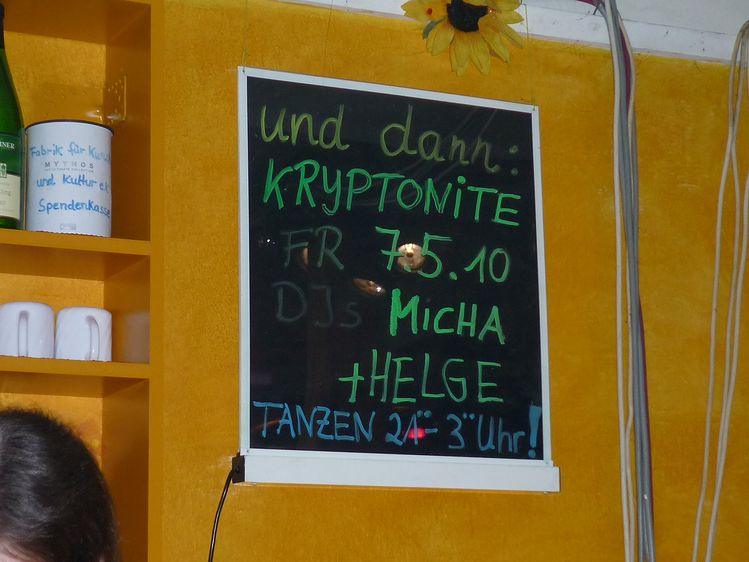 und dann:
KRYPTONiTE
FR 7.5.10
DJs MiCHA
+HELGE
TANZEN 21°°- 3°° Uhr!
Fabrik für Kunst
MYTHOS
und Kultur e.V.
Spendenkasse